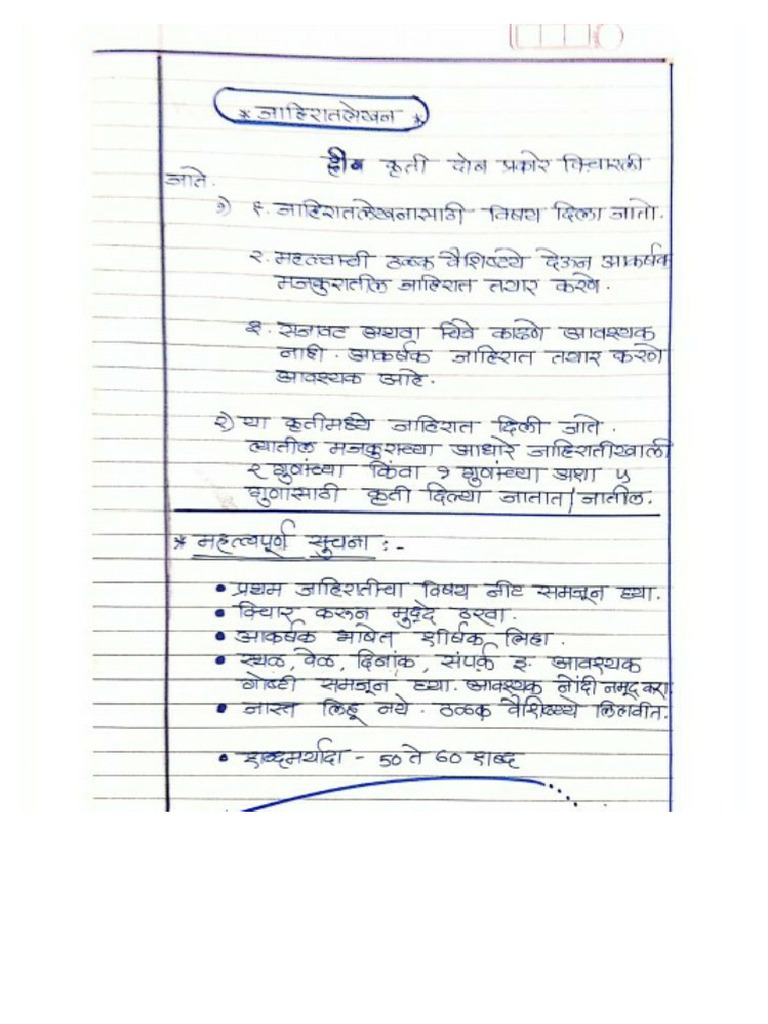 * जाहिरातलेखन *
ही कृती दोन प्रकारे विचारली
जाते.
१) १. जाहिरातलेखनासाठी विषय दिला जातो.
२. महत्त्वाची ठळक वैशिष्ट्ये देऊन आकर्षक
मजकुरातील जाहिरात तयार करणे.
३. सजावट अथवा चित्रे काढणे आवश्यक
नाही. आकर्षक जाहिरात तयार करणे
आवश्यक आहे.
२) या कृतीमध्ये जाहिरात दिली जाते.
त्यातील मजकुराच्या आधारे जाहिरातीखाली
२ गुणांच्या किंवा १ गुणांच्या अशा ५
गुणांसाठी कृती दिल्या जातात/जातील.
* महत्त्वपूर्ण सुचना :-
• प्रथम जाहिरातीचा विषय नीट समजून घ्या.
• विचार करून मुद्दे ठरवा.
• आकर्षक भाषेत शीर्षक लिहा.
• स्थळ, वेळ, दिनांक, संपर्क इ. आवश्यक
गोष्टी समजून घ्या. आवश्यक नोंदी नमूद करा.
• जास्त लिहू नये. ठळक वैशिष्ट्ये लिहावीत.
• शब्दमर्यादा - 50 ते 60 शब्द